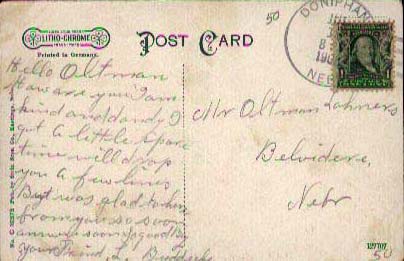 50
DONIPHAN
NEB
LITHO-CHROME
Printed in Germany.
POST CARD
Hello Oltman
How are you I am
kind and dandy I
got a little spare
time will drop
you a few lines
But was glad to hear
from you so soon
answer soon good By
your Friend, L.
Mr Oltman Lahners
Belvidere,
Nebr
127707
50